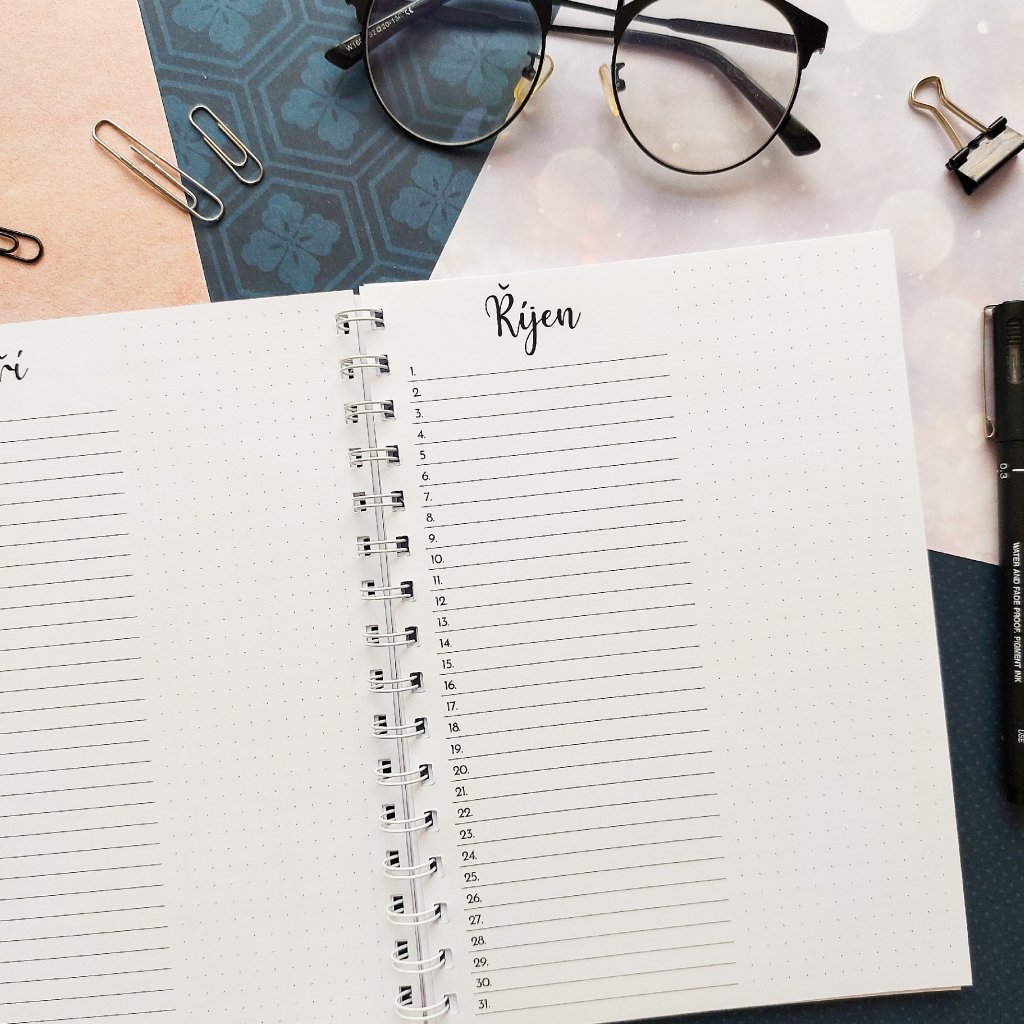 ří
Říjen
1.
2
3.
4.
5
6.
7.
8.
9.
10.
11.
12
13.
14.
15.
16.
17.
18.
19.
20.
21.
22
23.
24.
25.
26.
27.
28.
29.
30.
31.
0.3
WATER AND FADE PROOF, PIGMENT INK